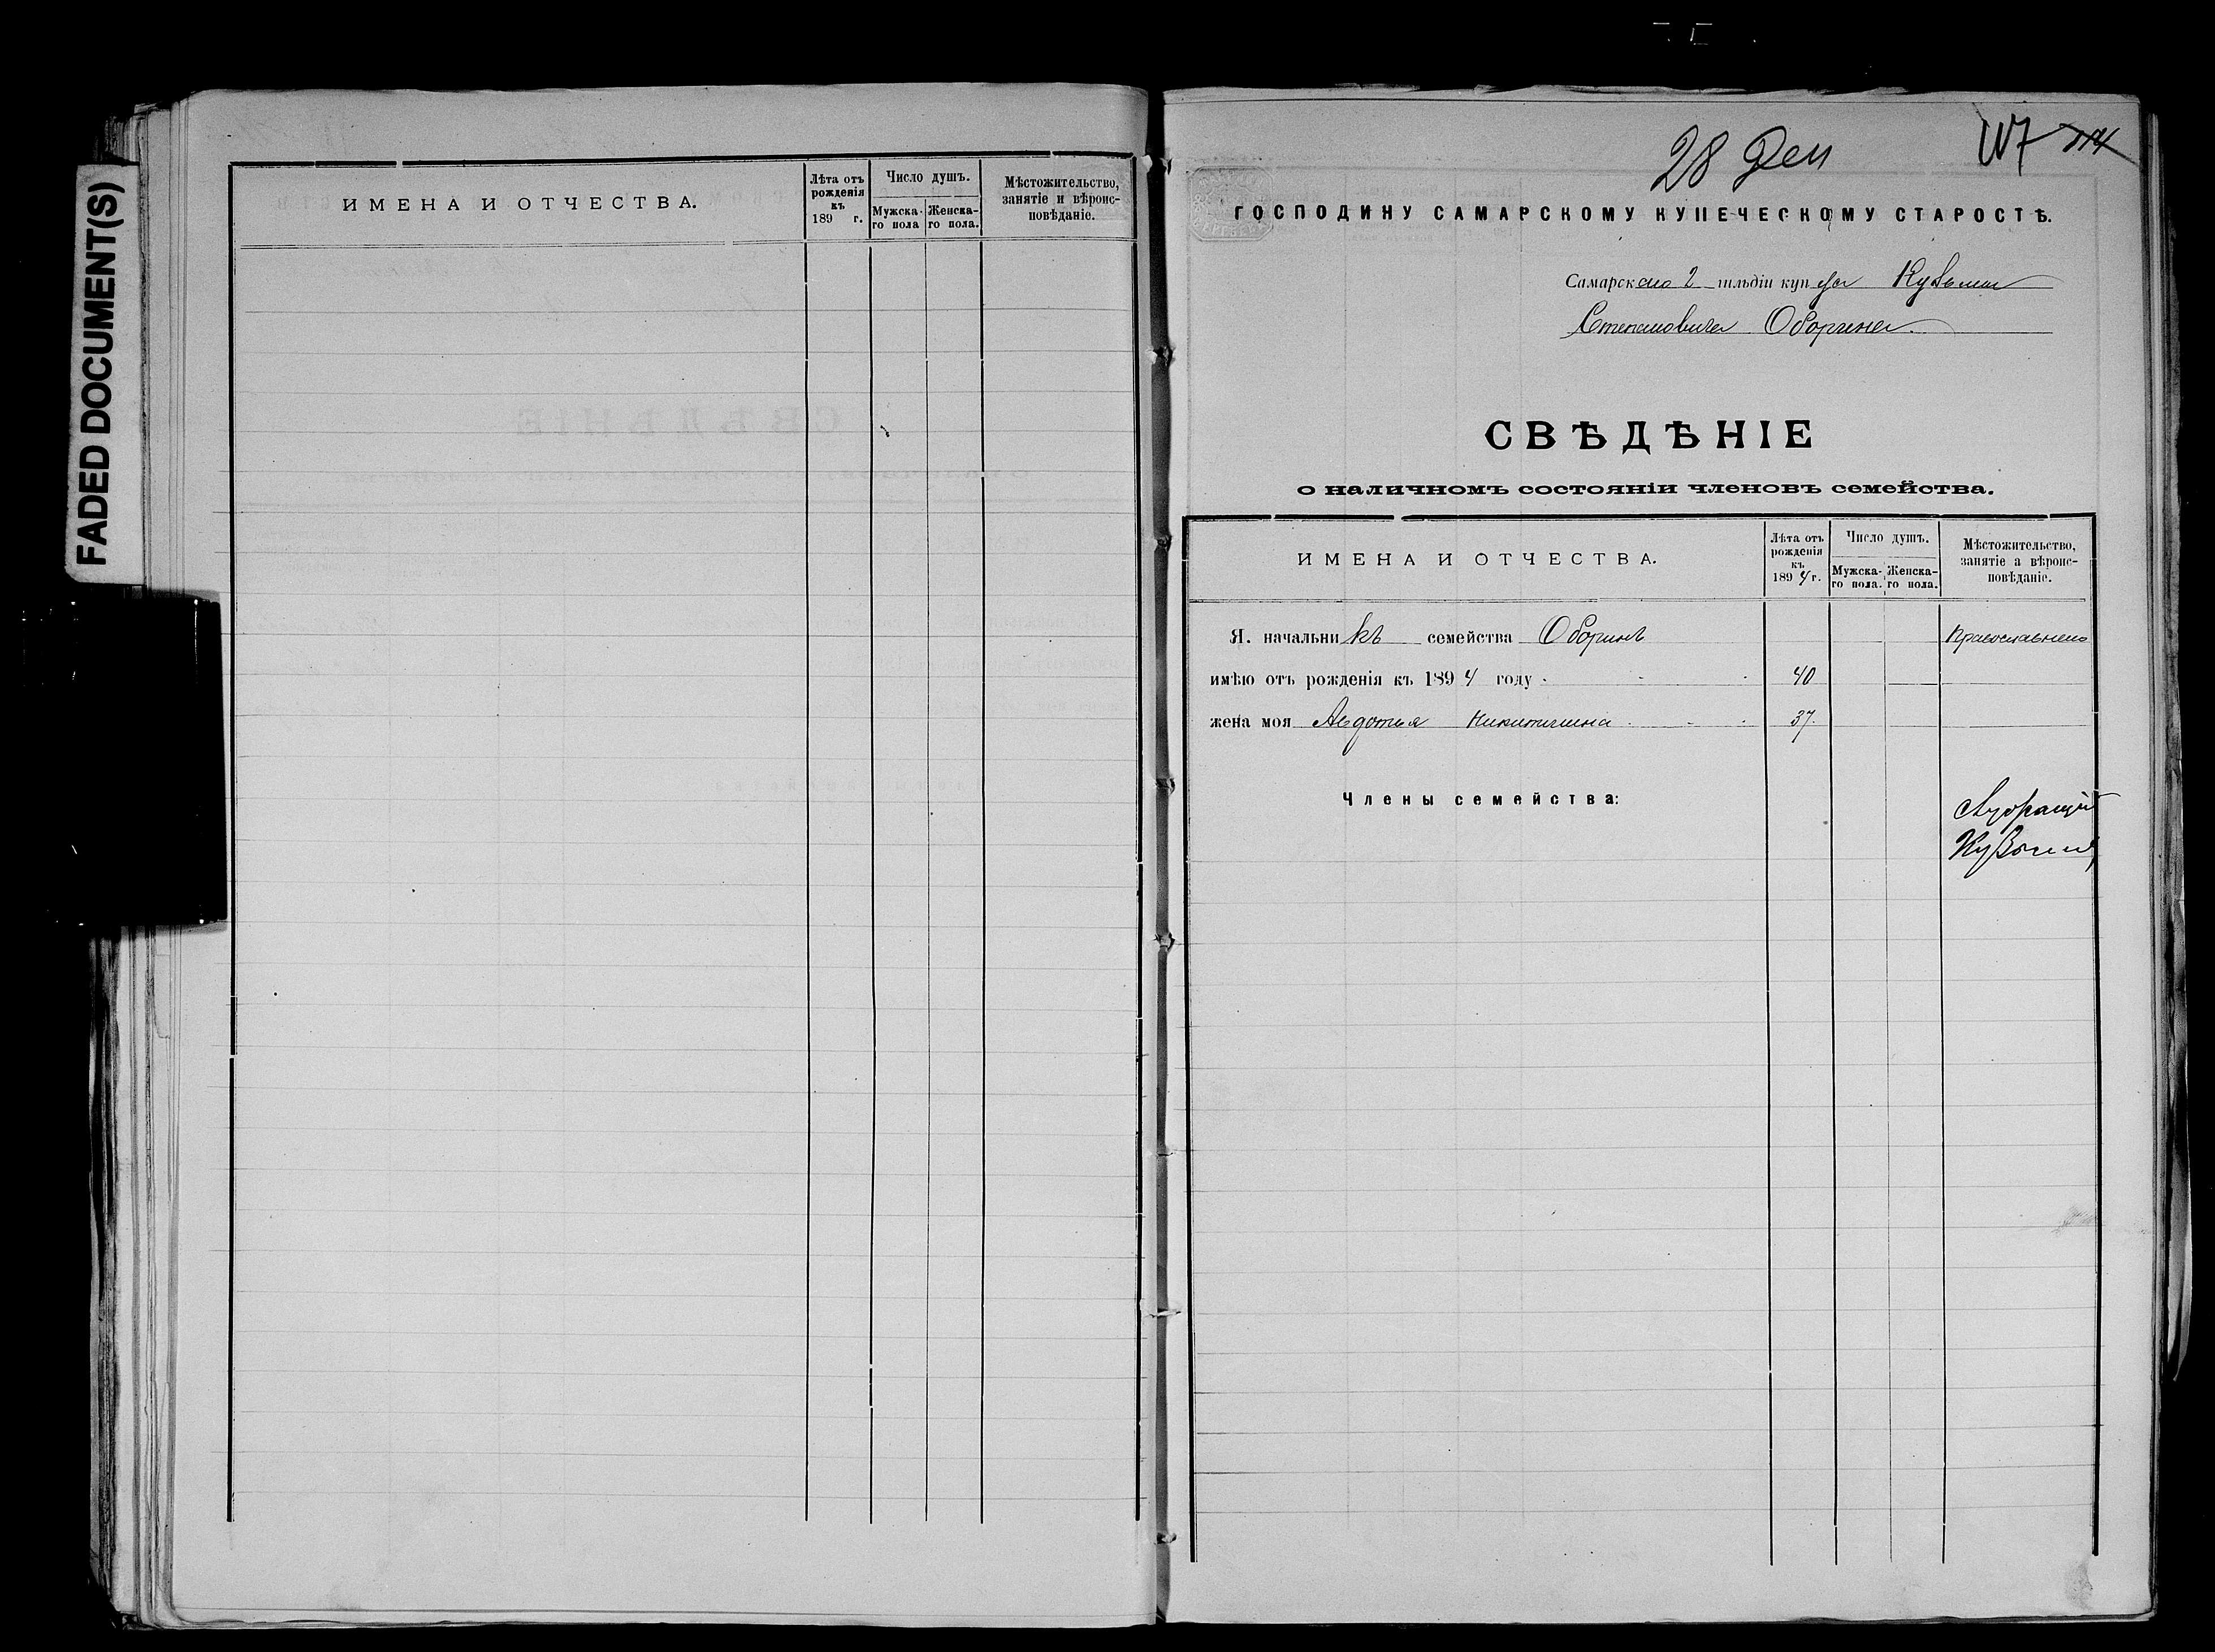 FADED DOCUMENT(S)
ИМЕНА И ОТЧЕСТВА.
Лѣта отъ рожденія къ 189 г.
Число душъ.
Мужска-го пола
Женска-го пола.
Мѣстожительство, занятіе и вѣроис-повѣданіе.
28 Дек
117
114
ГОСПОДИНУ САМАРСКОМУ КУПЕЧЕСКОМУ СТАРОСТѢ.
Самарскаго 2 гильдіи купца Кузьмы
Степановича Оборина
СВѢДѢНІЕ
о наличномъ состояніи членовъ семейства.
ИМЕНА И ОТЧЕСТВА.
Лѣта отъ рожденія къ 1894 г.
Число душъ.
Мужска-го пола.
Женска-го пола.
Мѣстожительство, занятіе а вѣроис-повѣданіе.
Я. начальникъ семейства Оборинъ Православнаго
имѣю отъ рожденія къ 1894 году 40
жена моя Авдотья Никитишна 37.
Члены семейства: